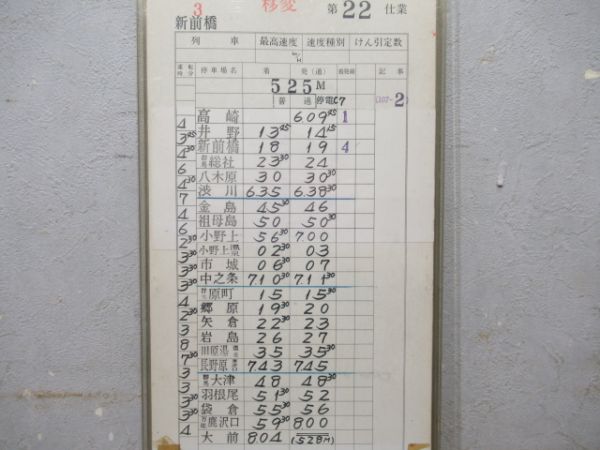 3 移変 第22仕業
新前橋
列車 最高速度 速度種別 けん引定数
km/H
運転時分 停車場名 着 発(通) 着発線 記事
525M
普通 停電C7 (107-2)
高崎 6.09 45 1
4 井野 13 45 14 15
3 45 新前橋 18 19 4
4 30 群馬総社 23 30 24
6 八木原 30 30 30
4 30 渋川 6.35 6.38 30
7 金島 45 30 46
4 祖母島 50 50 30
6 小野上 56 30 7.00
2 30 小野上温泉 02 30 03
3 30 市城 06 30 07
3 30 中之条 7.10 30 7.11 30
3 30 群馬原町 15 15 30
4 郷原 19 30 20
2 30 矢倉 22 30 23
3 岩島 26 27
8 川原湯温泉 35 35 30
7 30 長野原草津口 7.43 7.45
3 群馬大津 48 48 30
3 羽根尾 51 30 52
3 30 袋倉 55 30 56
3 30 万座鹿沢口 59 30 8.00
4 大前 8.04 (528M)